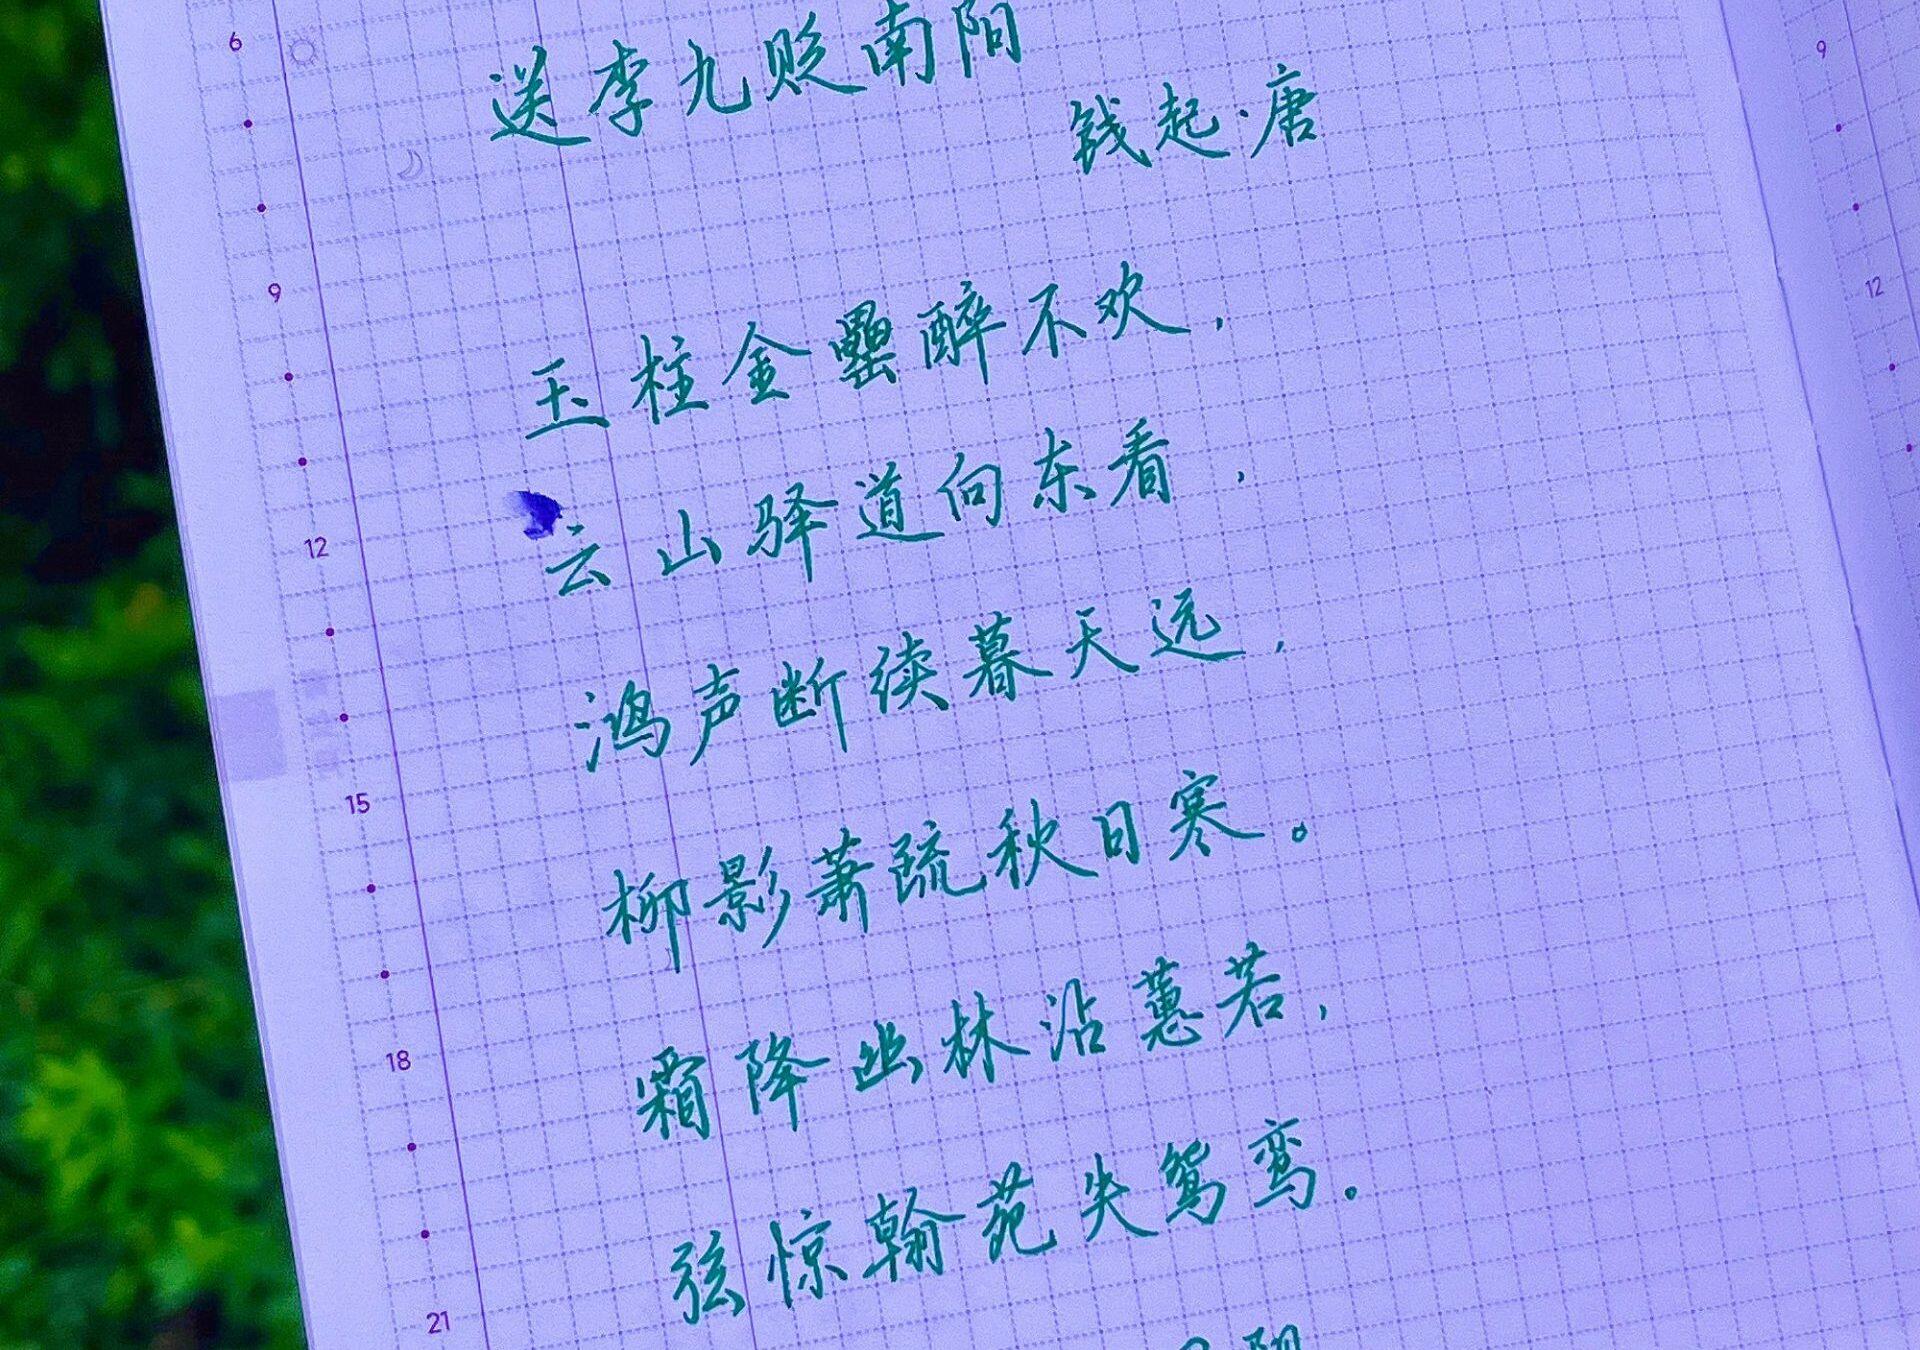 6
送李九贬南阳
钱起·唐
9
9
玉柱金罍醉不欢，
12
云山驿道向东看，
12
鸿声断续暮天远，
15
柳影萧疏秋日寒。
18
霜降幽林沾蕙若，
弦惊翰苑失鸳鸾。
21
阳